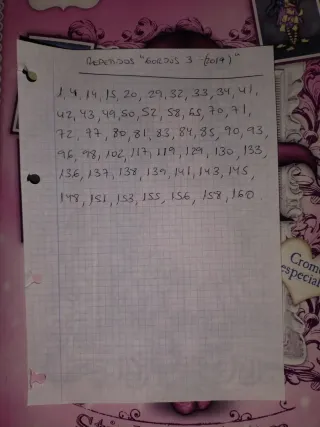 REPETIDOS "GORJUS 3 -(2019)"
1, 4, 14, 15, 20, 29, 32, 33, 34, 41,
42, 43, 49, 50, 52, 58, 65, 70, 71,
72, 77, 80, 81, 83, 84, 85, 90, 93,
96, 98, 102, 117, 119, 129, 130, 133,
136, 137, 138, 139, 141, 143, 145,
148, 151, 153, 155, 156, 158, 160.
Cromo
especial